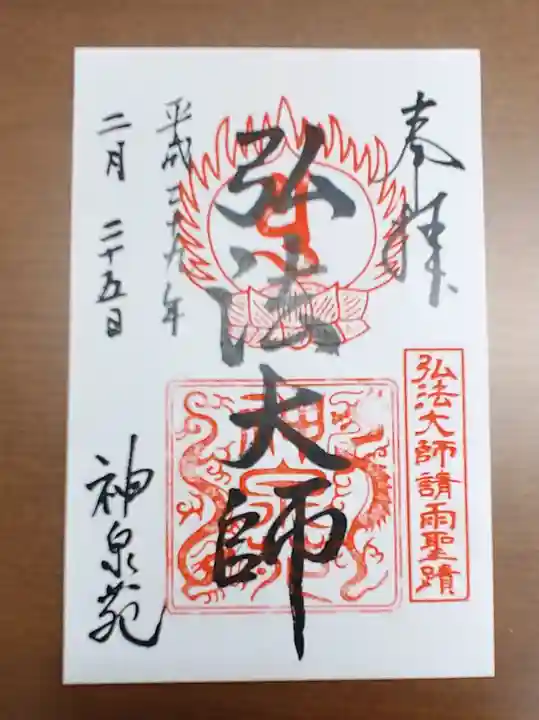 奉拝
弘法大師請雨聖蹟
弘法大師
平成二十九年
二月二十五日
神泉苑